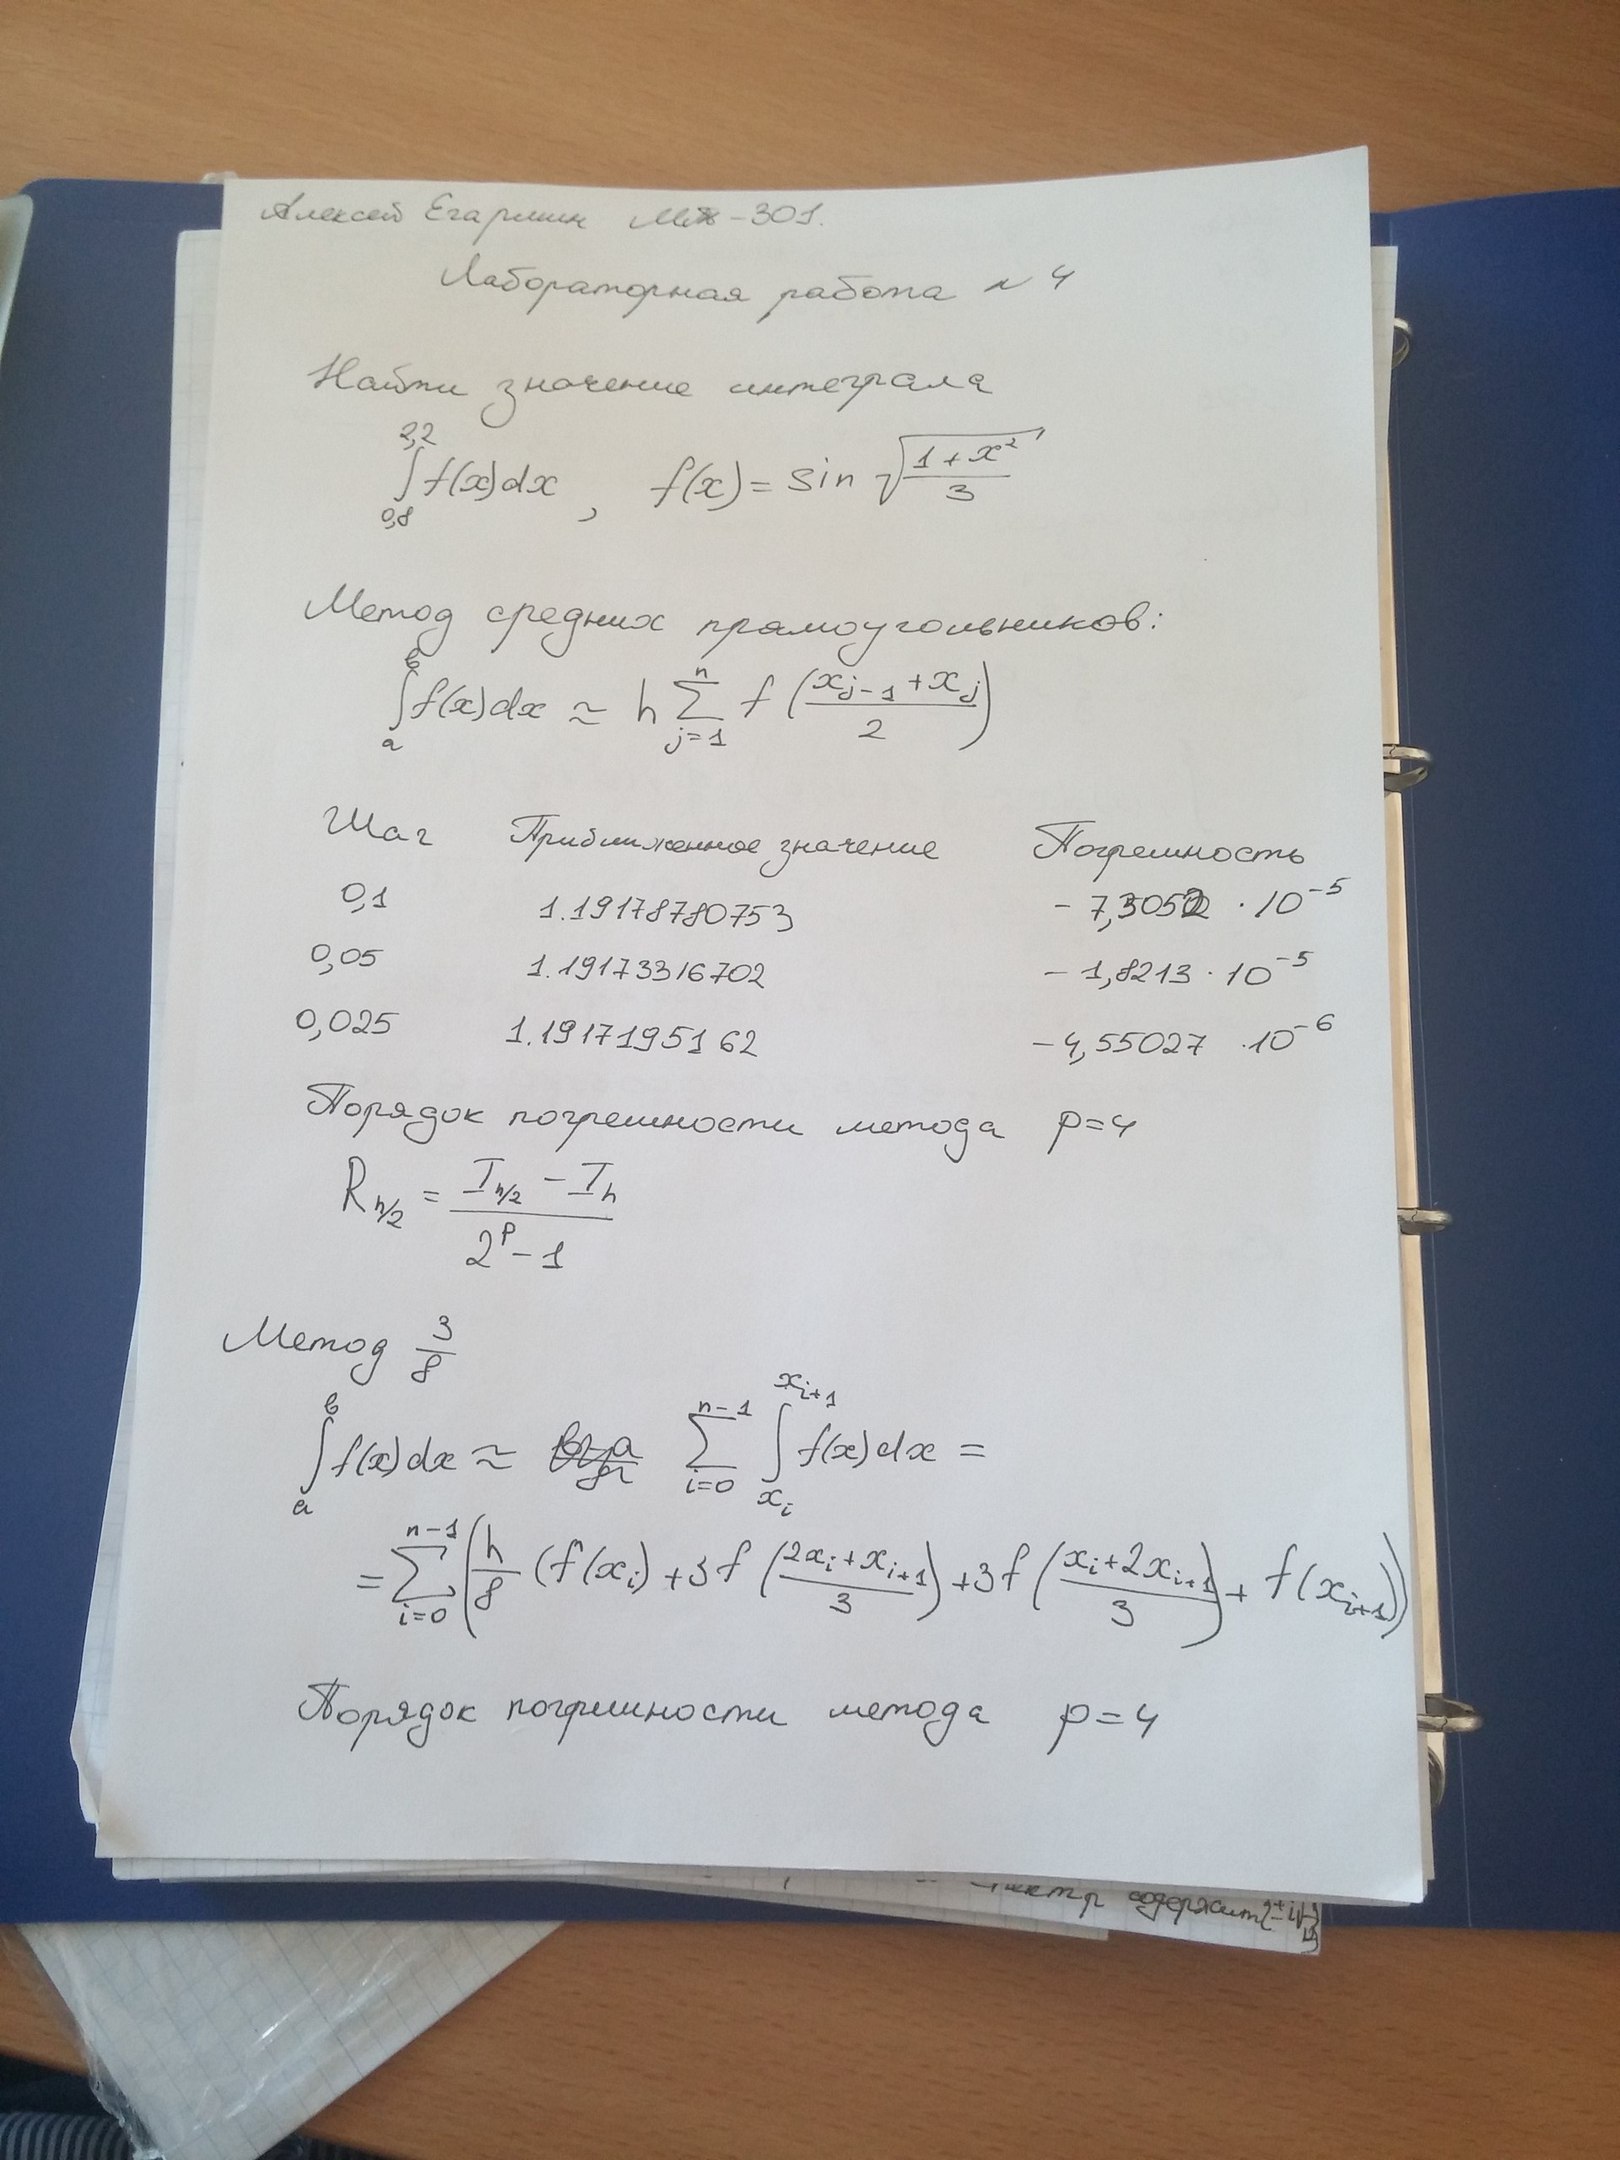 Алексей Егармин МТ-301.
Лабораторная работа N 4
Найти значение интеграла
∫_{0,8}^{2,2} f(x)dx , f(x) = sin √((1+x²)/3)
Метод средних прямоугольников:
∫_a^b f(x)dx ≈ h ∑_{j=1}^{n} f((x_{j-1}+x_j)/2)
Шаг Приближенное значение Погрешность
0,1 1.19178780753 - 7,3052 · 10^{-5}
0,05 1.19173316702 - 1,8213 · 10^{-5}
0,025 1.1917195162 - 4,55027 · 10^{-6}
Порядок погрешности метода p=4
R_{h/2} = (I_{h/2} - I_h)/(2^p - 1)
Метод 3/8
∫_a^b f(x)dx ≈ ∑_{i=0}^{n-1} ∫_{x_i}^{x_{i+1}} f(x)dx =
= ∑_{i=0}^{n-1} (h/8 (f(x_i) + 3f((2x_i+x_{i+1})/3) + 3f((x_i+2x_{i+1})/3) + f(x_{i+1})))
Порядок погрешности метода p=4
содержит